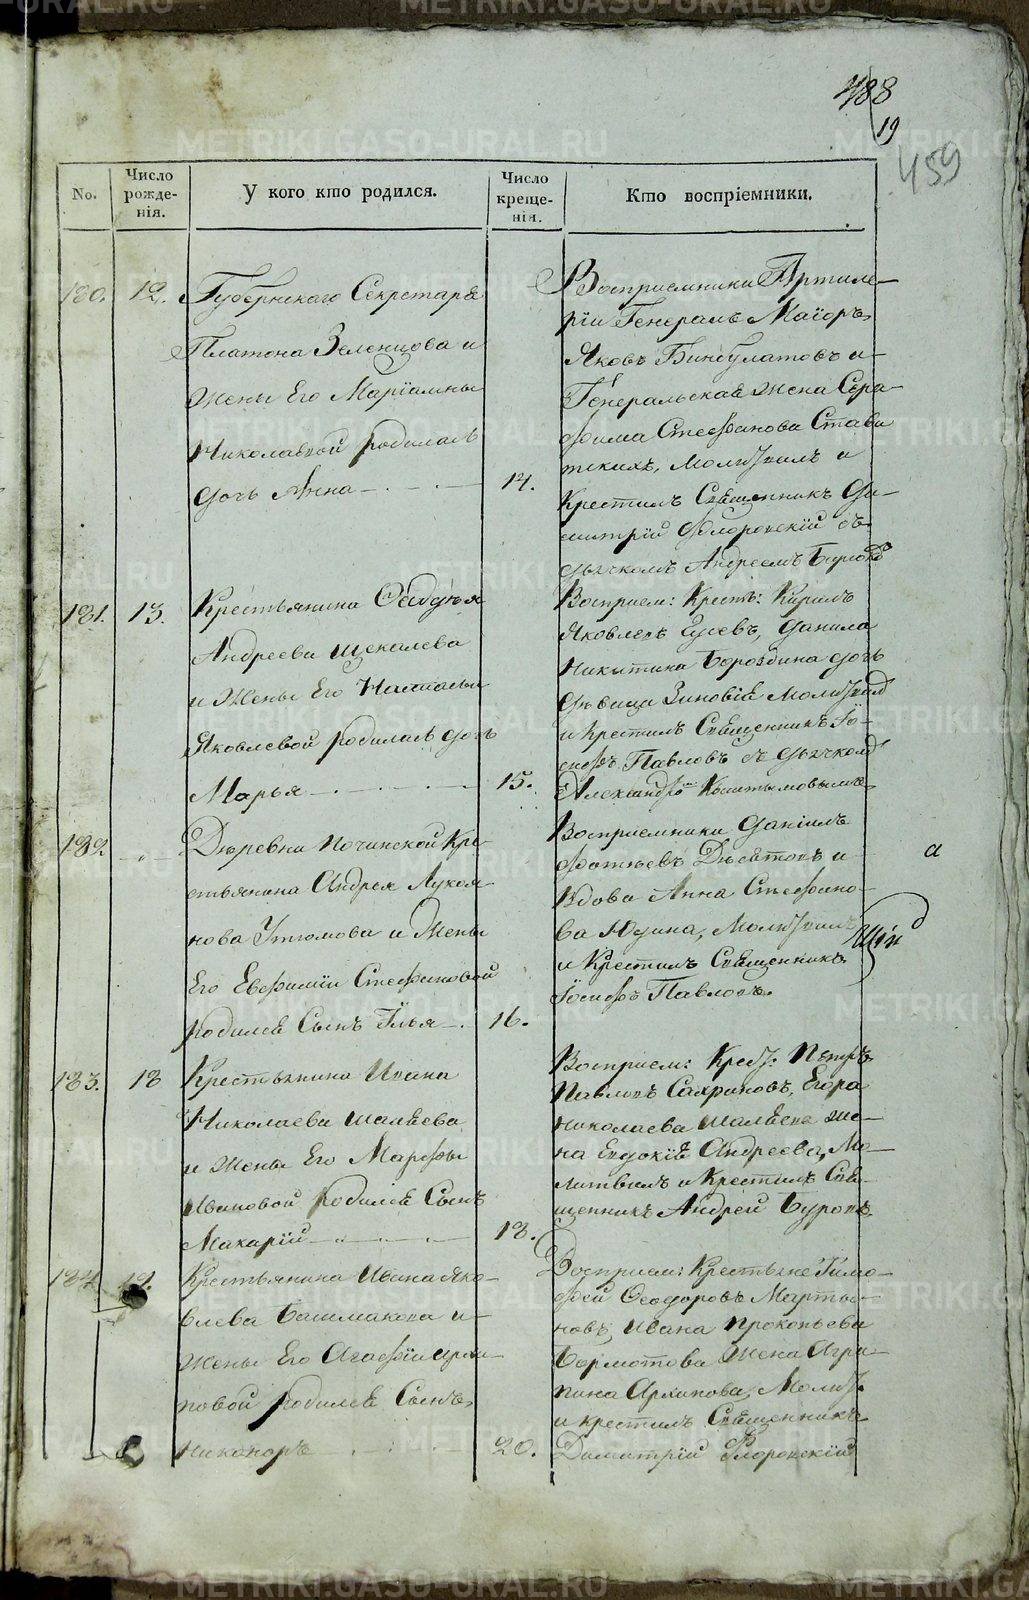 488
19
459
No.
Число рожде-нія.
У кого кто родился.
Число креще-нія.
Кто воспріемники.
180. 12. Губернскаго Секретаря
Платона Зеленцова и
жены Его Маріамны
Николавной родилась
дочь Анна 14.
Воспріемники Артиле-
ріи Генералъ Маіоръ
Яковъ Бикбулатовъ и
Генеральская жена Сера-
фима Стефанова
Молитвилъ и
Крестилъ Священникъ Ди-
митрій Флоровскій съ
дьячкомъ Андреемъ
181. 13. Крестьянина Фаддѣя
Андреева Щекалева
и жены Его Настасьи
Яковлевой родилась дочь
Марья 15.
Восприем: Крест: Кирилъ
Яковлевъ Гусевъ, Данила
Никитина Бороздина дочь
дѣвица Зиновія Молитвилъ
и крестилъ Священникъ Іо-
сифъ Павловъ съ дьячкомъ
Александромъ
182 Деревни Починской Кре-
стьянина Андрея Лукоя-
нова Утюмова и жены
Его Евфиміи Стефановой
родился Сынъ Илья 16.
Воспріемники Даніилъ
Фотѣевъ Десятовъ и
Вдова Анна Стефано-
ва Юдина, Молитвилъ
и Крестилъ Священникъ
Іосифъ Павловъ.
а
183. 18 Крестьянина Ивана
Николаева Шалѣева
и жены Его Марфы
Ивановой родился Сынъ
Макарій 18.
Восприем: Крест. Петръ
Павловъ Сахриновъ, Егора
Николаева Шалѣева же-
на Евдокія Андреева, Мо-
литвилъ и Крестилъ Свя-
щенникъ Андрей Буровъ
184 19. Крестьянина Ивана Яко-
влева Башмакова и
жены Его Агафіи Архи-
повой родился Сынъ
Никаноръ 20.
Восприем: Крестьяне Тимо-
фей Феодоровъ Марты-
новъ, Ивана Прокопьева
Бормотова жена Агри-
пина Архипова, Молит.
и крестилъ Священникъ
Димитрій Флоровскій
METRIKI.GASO-URAL.RU